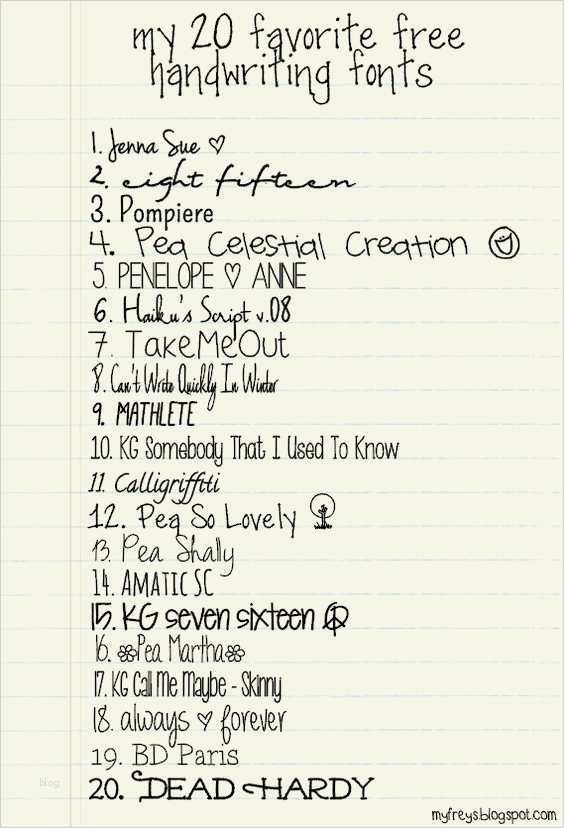 my 20 favorite free
handwriting fonts
1. Jenna Sue ♡
2. eight fifteen
3. Pompiere
4. Pea Celestial Creation
5. PENELOPE ♡ ANNE
6. Haiku's Script v.08
7. TakeMeOut
8. Can't Write Quickly In Winter
9. MATHLETE
10. KG Somebody That I Used To Know
11. Calligriffiti
12. Pea So Lovely
13. Pea Shally
14. AMATIC SC
15. KG seven sixteen
16. Pea Martha
17. KG Call Me Maybe - Skinny
18. always ♡ forever
19. BD Paris
20. DEAD HARDY
blog
myfreys.blogspot.com